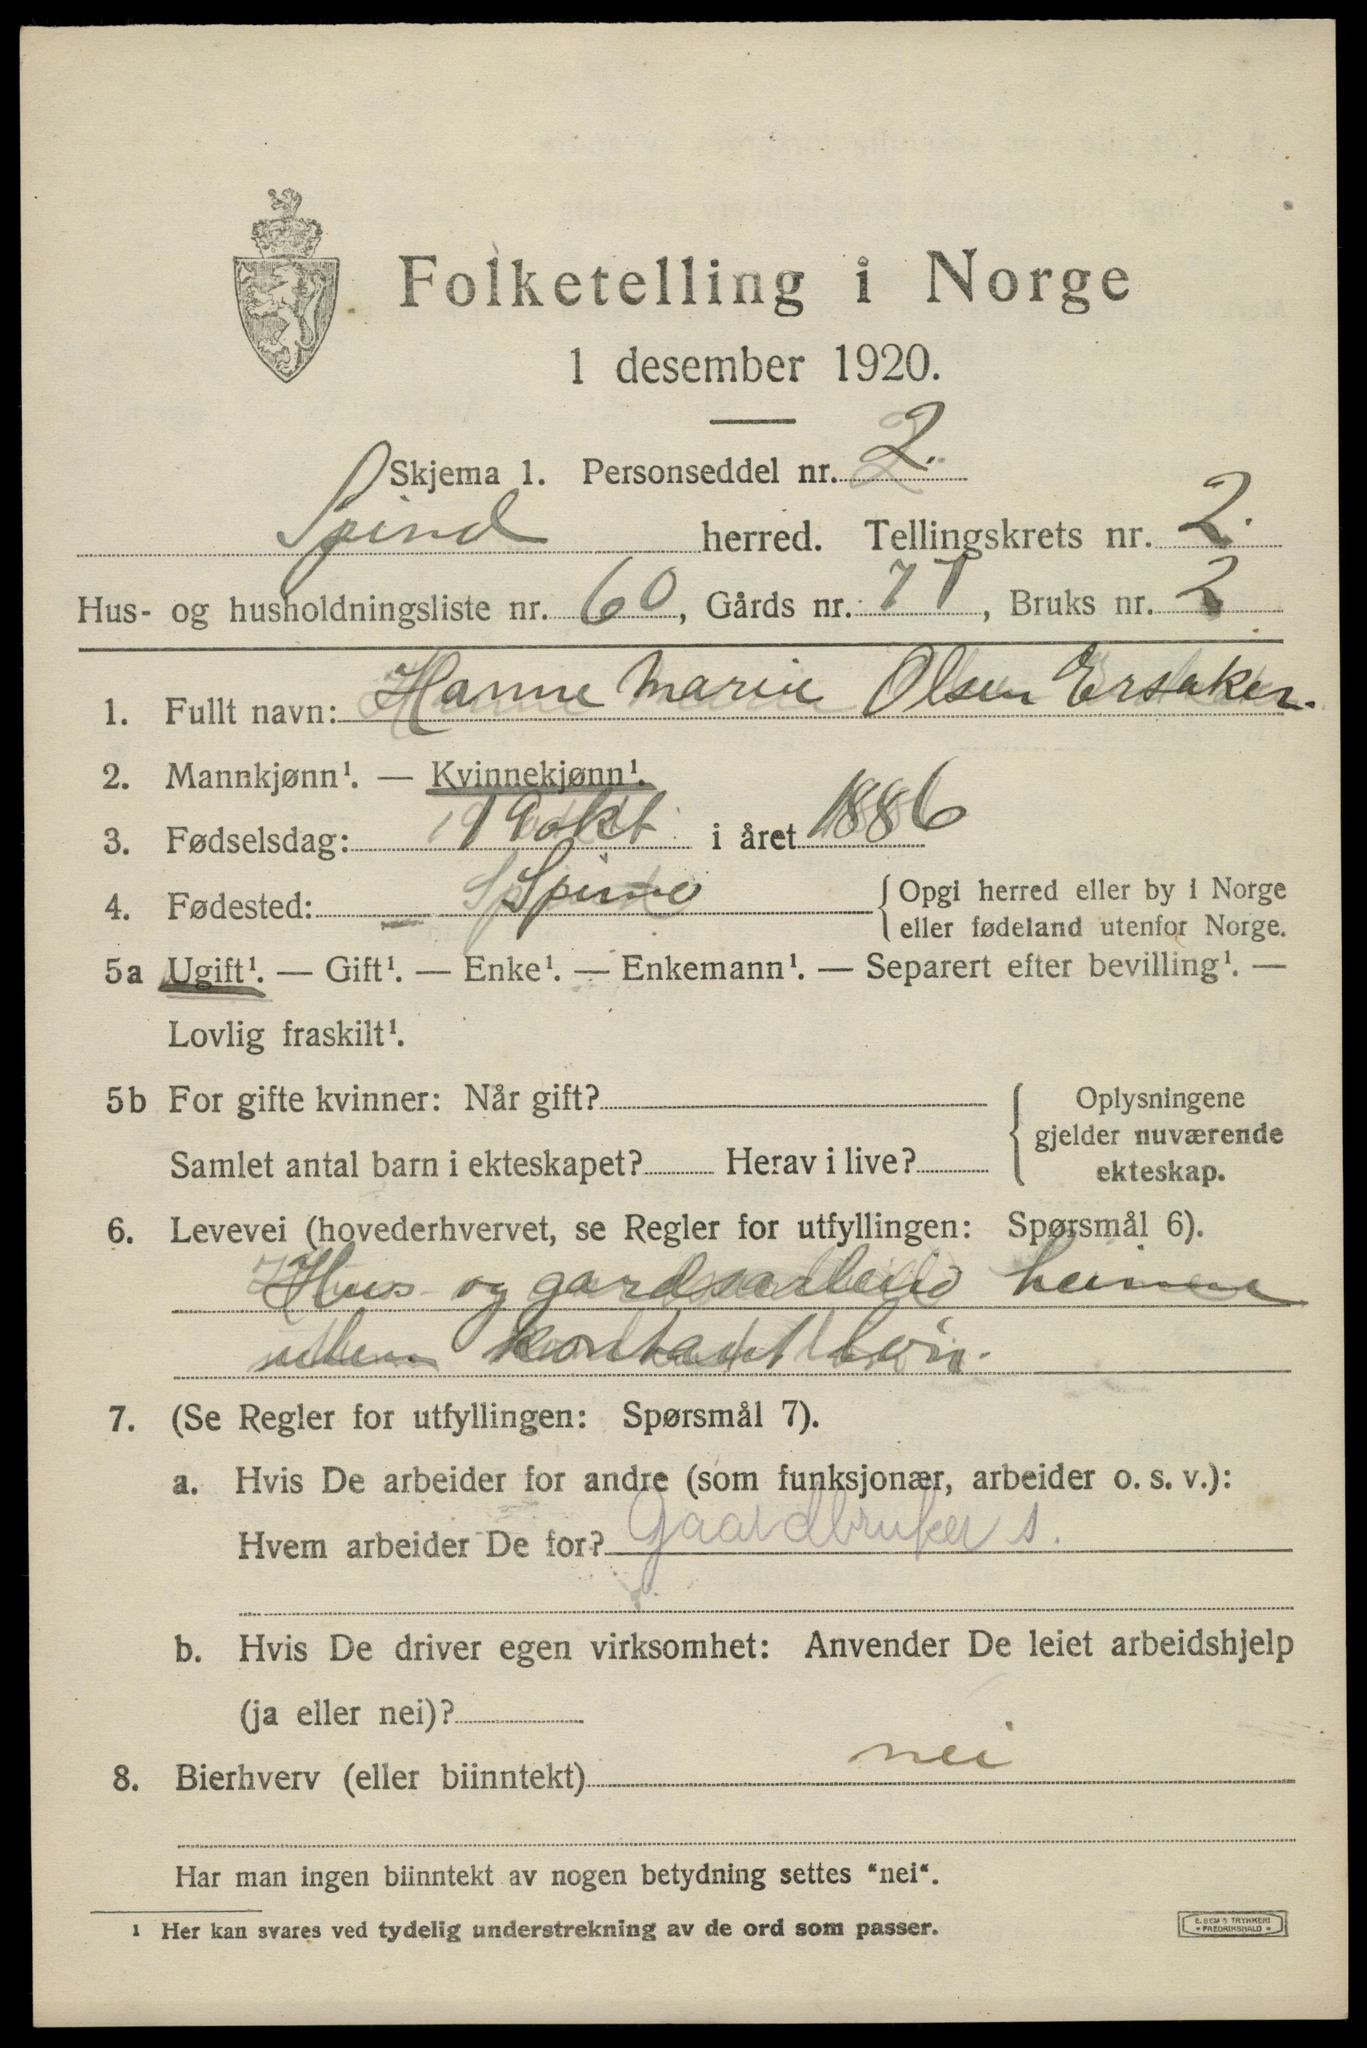 Folketelling i Norge
1 desember 1920.
Skjema 1. Personseddel nr. 2.
Spind herred. Tellingskrets nr. 2.
Hus- og husholdningsliste nr. 60, Gårds nr. 71, Bruks nr. 2
1. Fullt navn: Hanne Marie Olsen Ersaker.
2. Mannkjønn¹. — Kvinnekjønn¹.
3. Fødselsdag: 19 okt i året 1886
4. Fødested: Spind {Opgi herred eller by i Norge
eller fødeland utenfor Norge.
5a Ugift¹. — Gift¹. — Enke¹. — Enkemann¹. — Separert efter bevilling¹. —
Lovlig fraskilt¹.
5b For gifte kvinner: Når gift? { Oplysningene
gjelder nuværende
Samlet antal barn i ekteskapet? Herav i live?
ekteskap.
6. Levevei (hovederhvervet, se Regler for utfyllingen: Spørsmål 6).
Hus og gardsarbeid heime
uten kontant løn.
7. (Se Regler for utfyllingen: Spørsmål 7).
a. Hvis De arbeider for andre (som funksjonær, arbeider o. s. v.):
Hvem arbeider De for? Gaardbruker s.
b. Hvis De driver egen virksomhet: Anvender De leiet arbeidshjelp
(ja eller nei)?
8. Bierhverv (eller biinntekt) nei
Har man ingen biinntekt av nogen betydning settes “nei“.
¹ Her kan svares ved tydelig understrekning av de ord som passer.
E. SEM'S TRYKKERI
* FREDRIKSHALD *